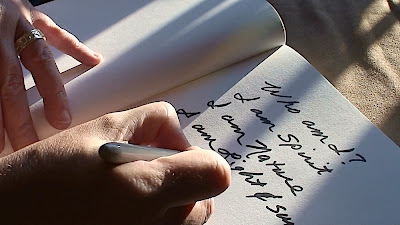 Who am I?
I am Spirit
I am Nature
I am Light & sun